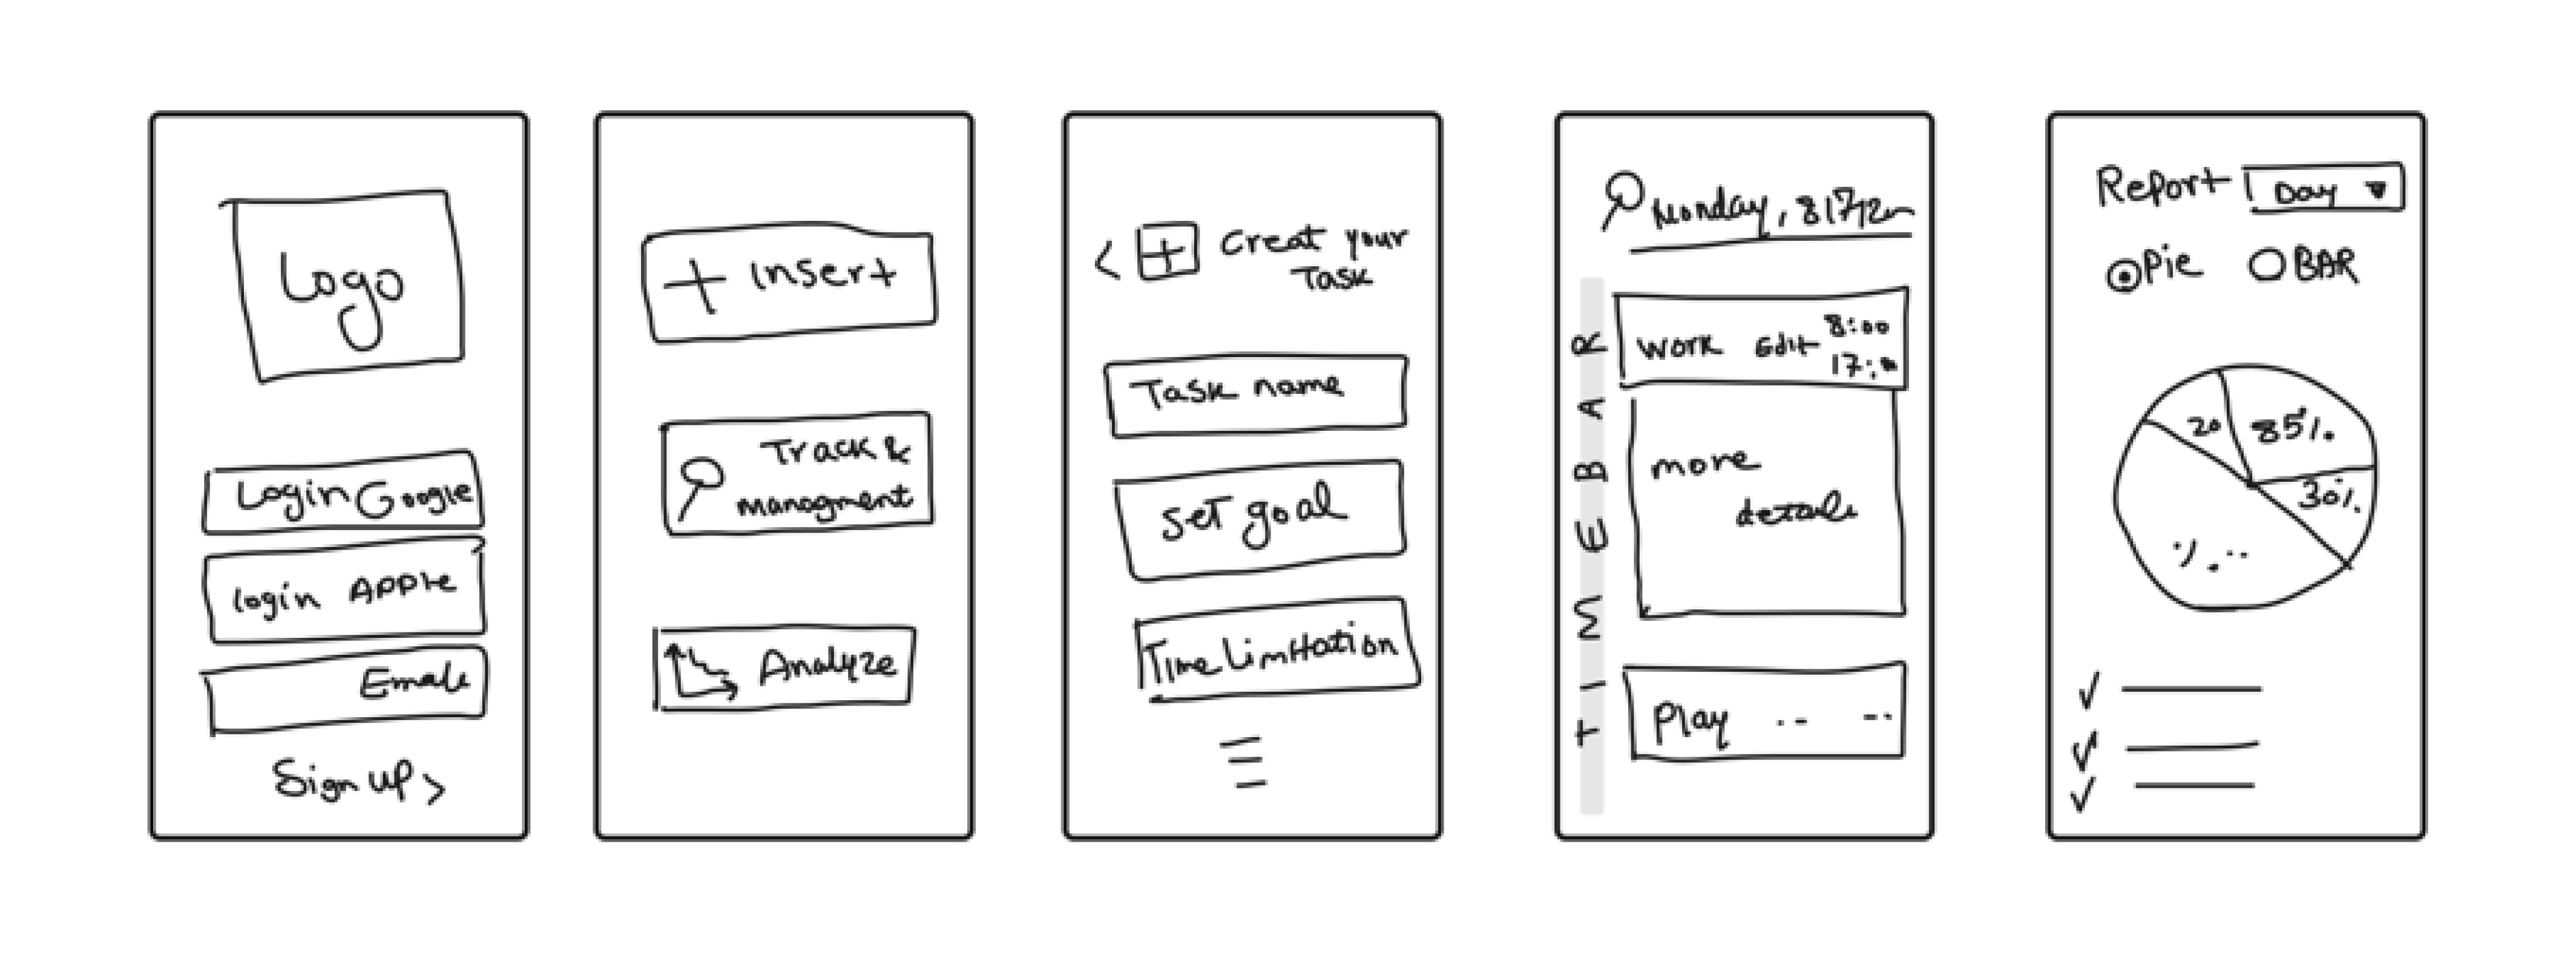 Logo
Login Google
login APPle
Sign up >
+ Insert
Track &
managment
Analyze
< + Creat your
Task
Task name
Set goal
Time Limitation
Monday,
TIMEBAR
Work Edit 8:00
17:
more
Play .. --
Report Day ▼
Pie BAR
20 85%
30%